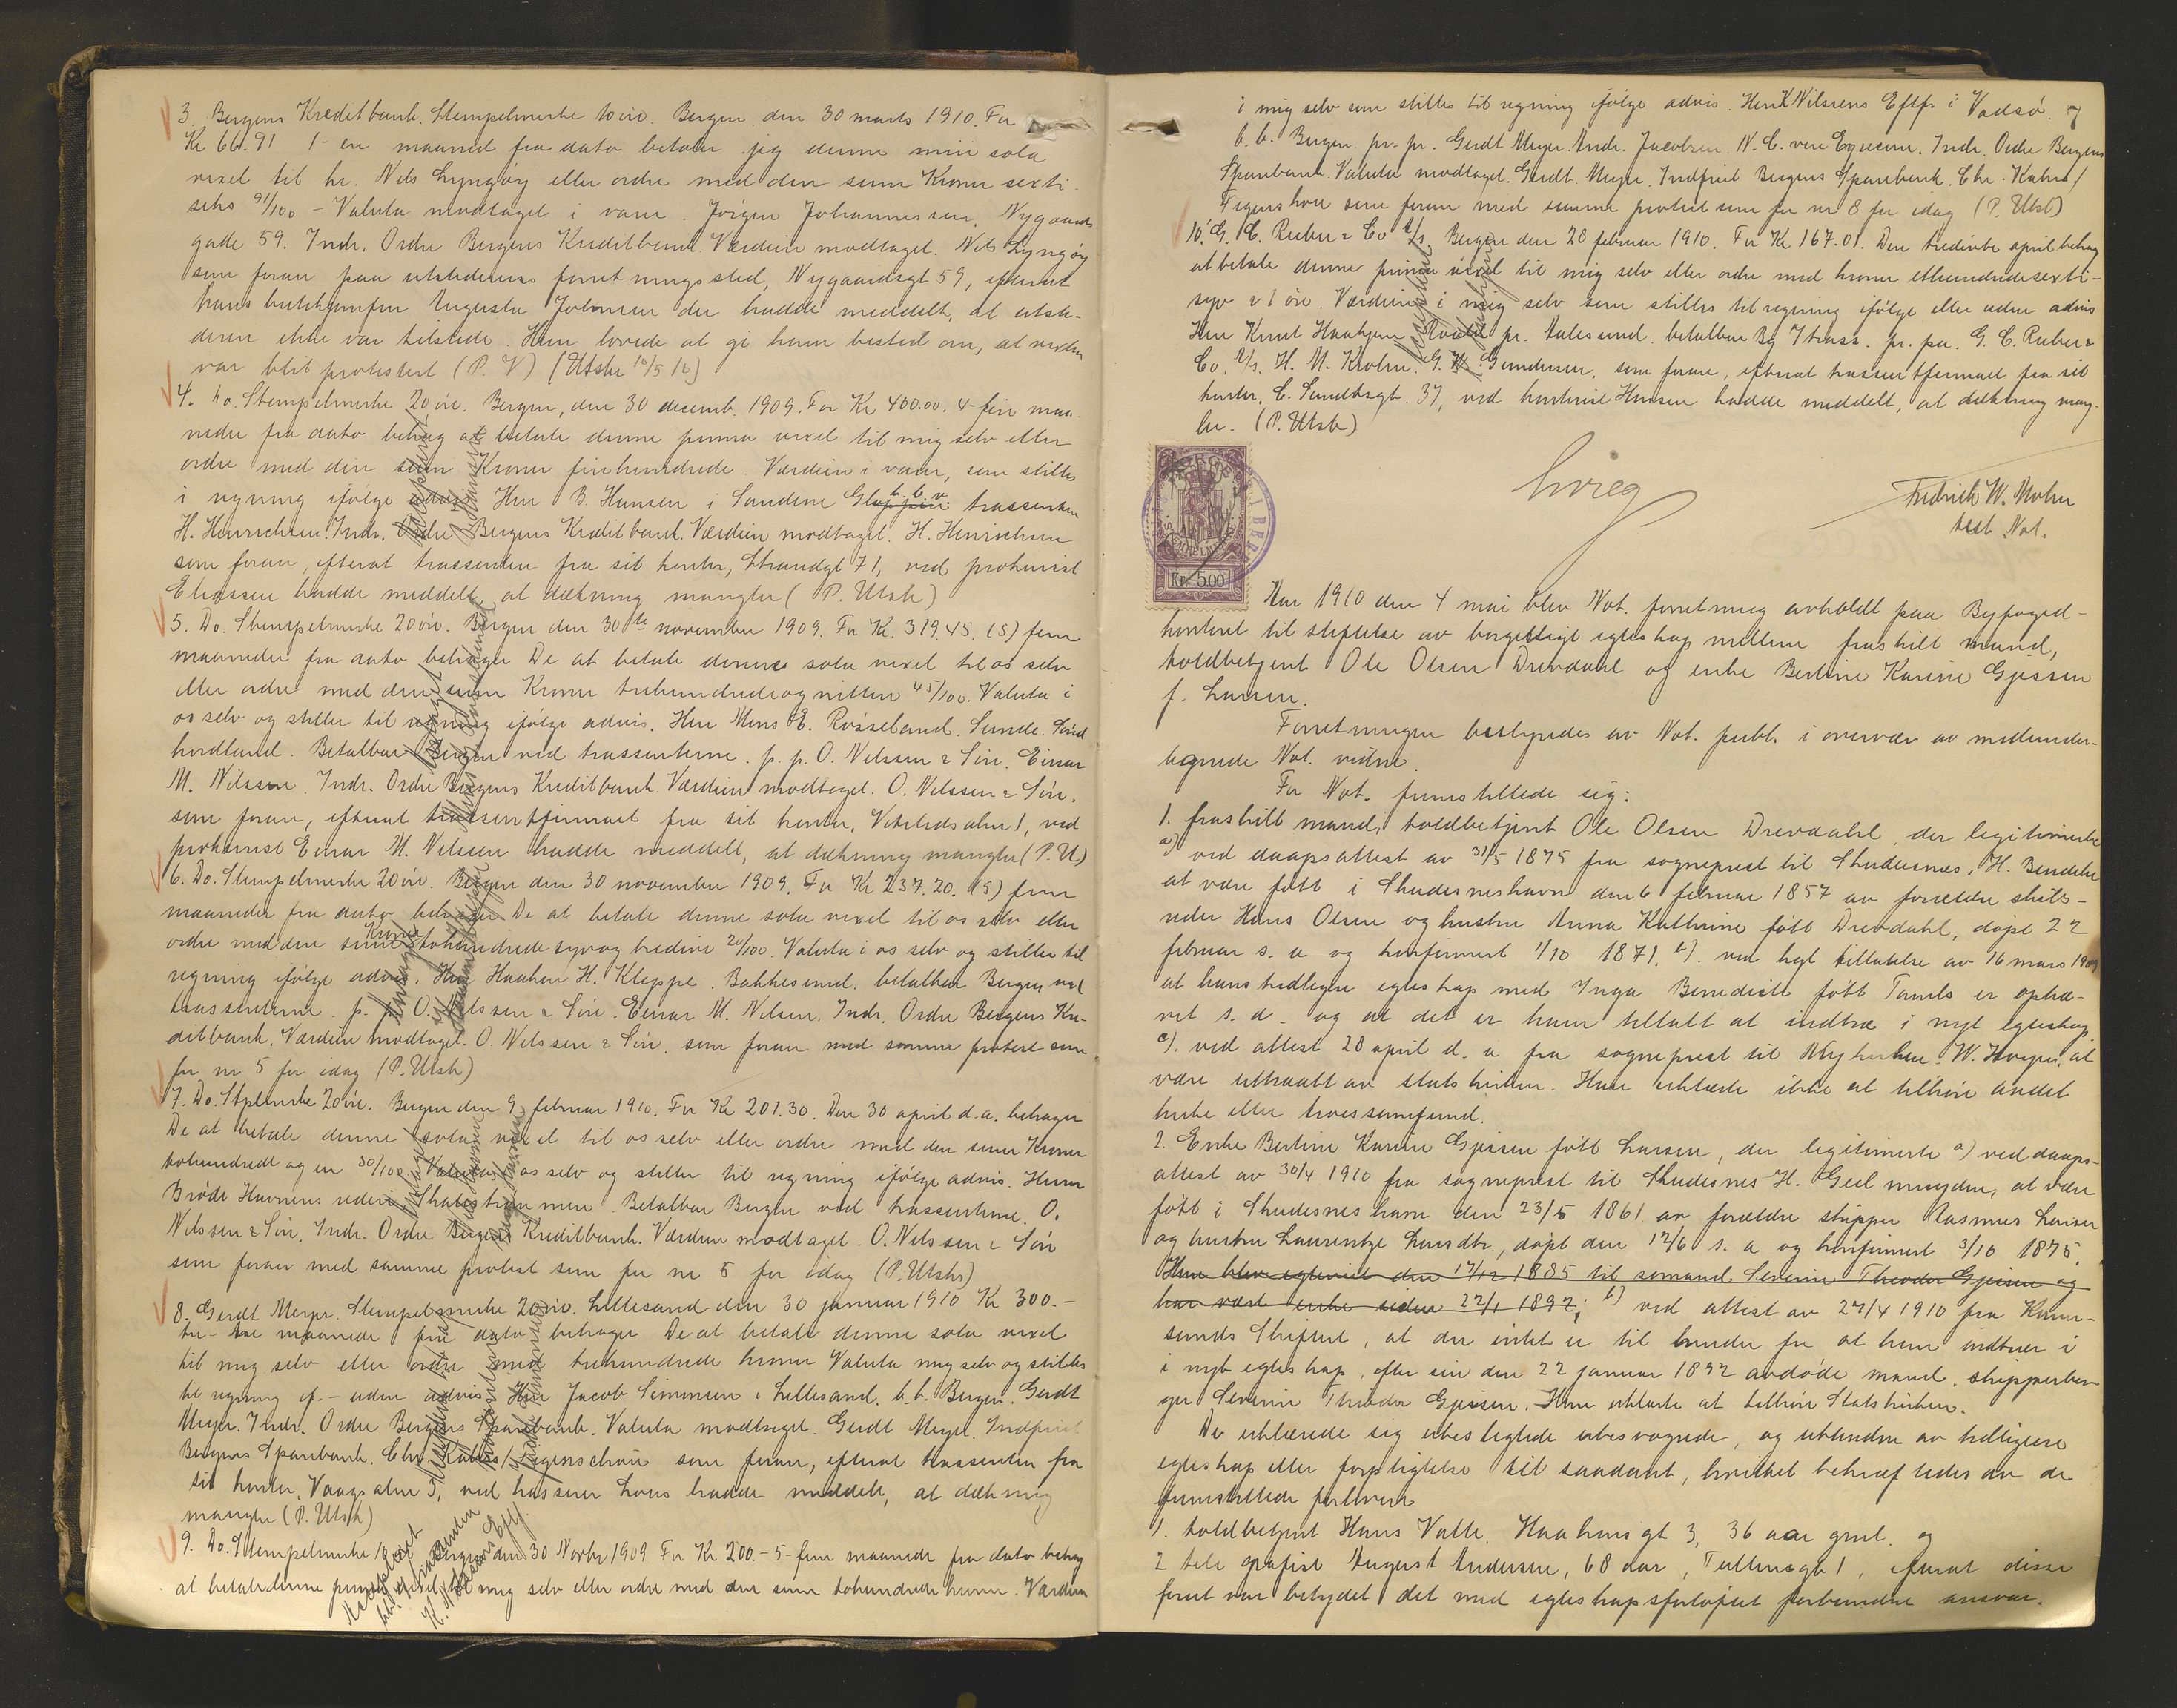 3. Bergens Kreditbank. Stempelmerke 10 øre. Bergen den 30 marts 1910. For
Kr 66.91 1- en maaned fra dato betaler jeg denne min sola
vexel til hr. Nils Lyngøy eller ordre med den sum Kroner sexti
seks 91/100 - Valuta modtaget i varer. Jørgen Johannessen. Nygaards
gade 59. Indr. Ordre Bergens Kreditbank Værdien modtaget. Nils Lyngøy
som foran paa utstederens forretningssted, Nygaardsgt 59, efterat
hans butikjomfru Augusta Johnsen der hadde meddelt, at utste-
deren ikke var tilstede. Hun lovede at gi ham besked om, at vexlen
var blit protestert (P. V) (Utskr 10/5 16)
4. Do. Stempelmerke 20 øre. Bergen, den 30 decemb. 1909. For Kr 400.00. 4-fire maa-
neder fra dato behag at betale denne prima vexel til mig selv eller
ordre med den sum Kroner firehundrede. Værdien i varer, som stilles
i regning ifølge advis Herr B. Hansen i Sandene b. b. v. trassenten
H. Hinrichsen. Indr. Ordre Bergens Kreditbank. Værdien modtaget. H. Hinrichsen
som foran, efterat trassenten fra sit kontor, Strandgt 71, ved prokurist
Eliassen hadde meddelt, at dækning mangler (P. Utskr)
5. Do. Stempelmerke 20 øre. Bergen den 30te november 1909. For Kr. 319.45. (5) fem
maaneder fra dato behager De at betale denne sola vexel til os selv
eller ordre med den sum Kroner trehundredeognitten 45/100. Valuta i
os selv og stilles til regning ifølge advis. Herr Mons E. Røsseland. Sunde. Sønd
hordland. Betalbar Bergen ved trassenterne. p. p. O. Nilssen & Søn. Einar
M. Nilssen. Indr. Ordre Bergens Kreditbank. Værdien modtaget. O. Nilssen & Søn.
som foran, efterat trassentfirmaet fra sit kontor, Vetrlidsalm 1, ved
prokurist Einar M. Nilssen hadde meddelt, at dækning mangler (P. U)
6. Do. Stempelmerke 20 øre. Bergen den 30 november 1909. For Kr 237.20. (5) fem
maaneder fra dato behager De at betale denne sola vexel til os selv eller
ordre med den sum Kroner tohundrede syvogtredive 20/100. Valuta i os selv og stilles til
regning ifølge advis. Herr Haakon H. Kleppe. Bakkesund. betalbar Bergen ved
trassenterne. p. p. O. Nilssen & Søn. Einar M. Nilsen. Indr. Ordre Bergens Kre-
ditbank. Værdien modtaget. O. Nilssen & Søn, som foran med samme protest som
for nr 5 for idag (P. Utskr)
7. Do. Stplmrke 20 øre. Bergen den 9 februar 1910. For Kr 201.30. Den 30 april d.a. behager
De at betale denne sola vexel til os selv eller ordre med den sum Kroner
tohundrede og en 30/100. Valuta i os selv og stilles til regning ifølge advis. Herrer
Brødr Havnens rederi Skalestrømmen. Betalbar Bergen ved trassenterne. O.
Nilssen & Søn. Indr. Ordre Bergens Kreditbank. Værdien modtaget. O. Nilssen & Søn
som foran med samme protest som for nr 5 for idag (P. Utskr)
8. Gerdt Meyer. Stempelmerke 20 øre. Lillesand den 30 januar 1910 Kr 300.-
tre- tre maaneder fra dato behager De at betale denne sola vexel
til mig selv eller ordre med trehundrede kroner Valuta mig selv og stilles
til regning if. - uden advis Herr Jacob Simonsen i Lillesand. b. b. Bergen. Gerdt
Meyer. Indr. Ordre Bergens Sparebank. Valuta modtaget. Gerdt Meyer. Indfriet
Bergens Sparebank. Chr. Kahrs/Figenschou som foran, efterat trassenten fra
sit kontor, Vaagsalm 5, ved kasserer Lous hadde meddelt, at dækning
mangler (P. Utskr)
9. Do. Stempelmerke 10 øre Bergen den 30 Novbr 1909 For Kr 200.- 5-fem maaneder fra dato behag
at betale denne prima vexel til mig selv eller ordre med den sum tohundrede kroner. Værdien
Akseptert
K. Nilssens Eftf.
i mig selv som stilles til regning ifølge advis. Herr K Nilssens Eftf. i Vadsø. 7
b. b. Bergen. pr. pr. Gerdt Meyer. Andr. Jacobsen. N. C. von Erpecom. Indr. Ordre Bergens
Sparebank. Valuta modtaget. Gerdt Meyer. Indfriet Bergens Sparebank. Chr. Kahrs/
Figenschou som foran med samme protest som for nr 8 for idag (P. Utskr)
10. G. C. Rieber & Co A/s. Bergen den 28 februar 1910. For Kr 167.01. Den tredivte april behag
at betale denne prima vexel til mig selv eller ordre med kroner ethundredesexti-
syv & 1 øre. Værdien i mig selv som stilles til regning ifølge eller uden advis
Herr Knut Haakgem Roald pr. Aalesund. betalbar Bg I trass. pr. pa. G. C. Rieber &
Co. A/s. H. M. Krohn. G. Gundersen. som foran, efterat trassentfirmaet fra sit
kontor, C. Sundtsgt. 37, ved kontorist Hansen hadde meddelt, at dækning mang-
ler. (P. Utskr)
NORGE
STEMPELMERKE
Kr. 5.00
Fredrik W. Mohn
test. Not.
Aar 1910 den 4 mai blev Not. forretning avholdt paa Byfoged-
kontoret til stiftelse av borgerligt egteskap mellem fraskilt mand,
toldbetjent Ole Olsen Drevdahl og enke Bertine Karine Gjessen
f. Larsen.
Forretningen bestyredes av Not. publ. i overvær av medunder-
tegnede Not. vidne.
For Not. fremstillede sig:
1. fraskilt mand, toldbetjent Ole Olsen Drevdahl, der legitimerte
a) ved daapsattest av 31/5 1875 fra sogneprest til Skudesnes, H. Bendeke
at være født i Skudesneshavn den 6 februar 1857 av forældre skibs-
reder Hans Olsen og hustru Anna Kathrine født Drevdahl, døpt 22
februar s. a og konfirmert 1/10 1871, b). ved kgl. tilladelse av 16 mars 1909
at hans tidligere egteskap med Inga Benedicte født Tamls er ophæ-
vet s. d. og at det er ham tillatt at indtræ i nyt egteskap.
c). ved attest 28 april d. a fra sogneprest til Nykirken W. Hvoper, at
være uttraadt av statskirken. Han erklærte ikke at tilhøre andet
kirke eller troessamfund.
2. Enke Bertine Karine Gjessen født Larsen, der legitimerte a) ved daaps-
attest av 30/4 1910 fra sogneprest til Skudesnes H. Geelmuyden, at være
født i Skudesneshavn den 23/5 1861 av forældre skipper Rasmus Larsen
og hustru Laurentze Larsdtr, døpt den 12/6 s. a og konfirmert 3/10 1875.
Hun blev egteviet den 17/12 1885 til sømand Severin Theodor Gjessen og
har været enke siden 22/1 1892; b) ved attest av 27/4 1910 fra Karm-
sunds Skifteret, at der intet er til hinder for at hun indtræer i
i nyt egteskap, efter sin den 22 januar 1892 avdøde mand, skipperbor-
ger Severin Theodor Gjessen. Hun erklærte at tilhøre Statskirken.
De erklærede sig ubeslegtede ubesvogrede, og ubundne av tidligere
egteskap eller forpligtelse til saadant, hvilket bekræftedes av de
fremstillede forlovere
1. toldbetjent Hans Valle. Haakonsgt 3, 36 aar gml. og
2 telegrafist August Andersen, 68 aar, Tullinsgt 1, efterat disse
forut var betydet det med egteskapsforløftet forbundne ansvar.